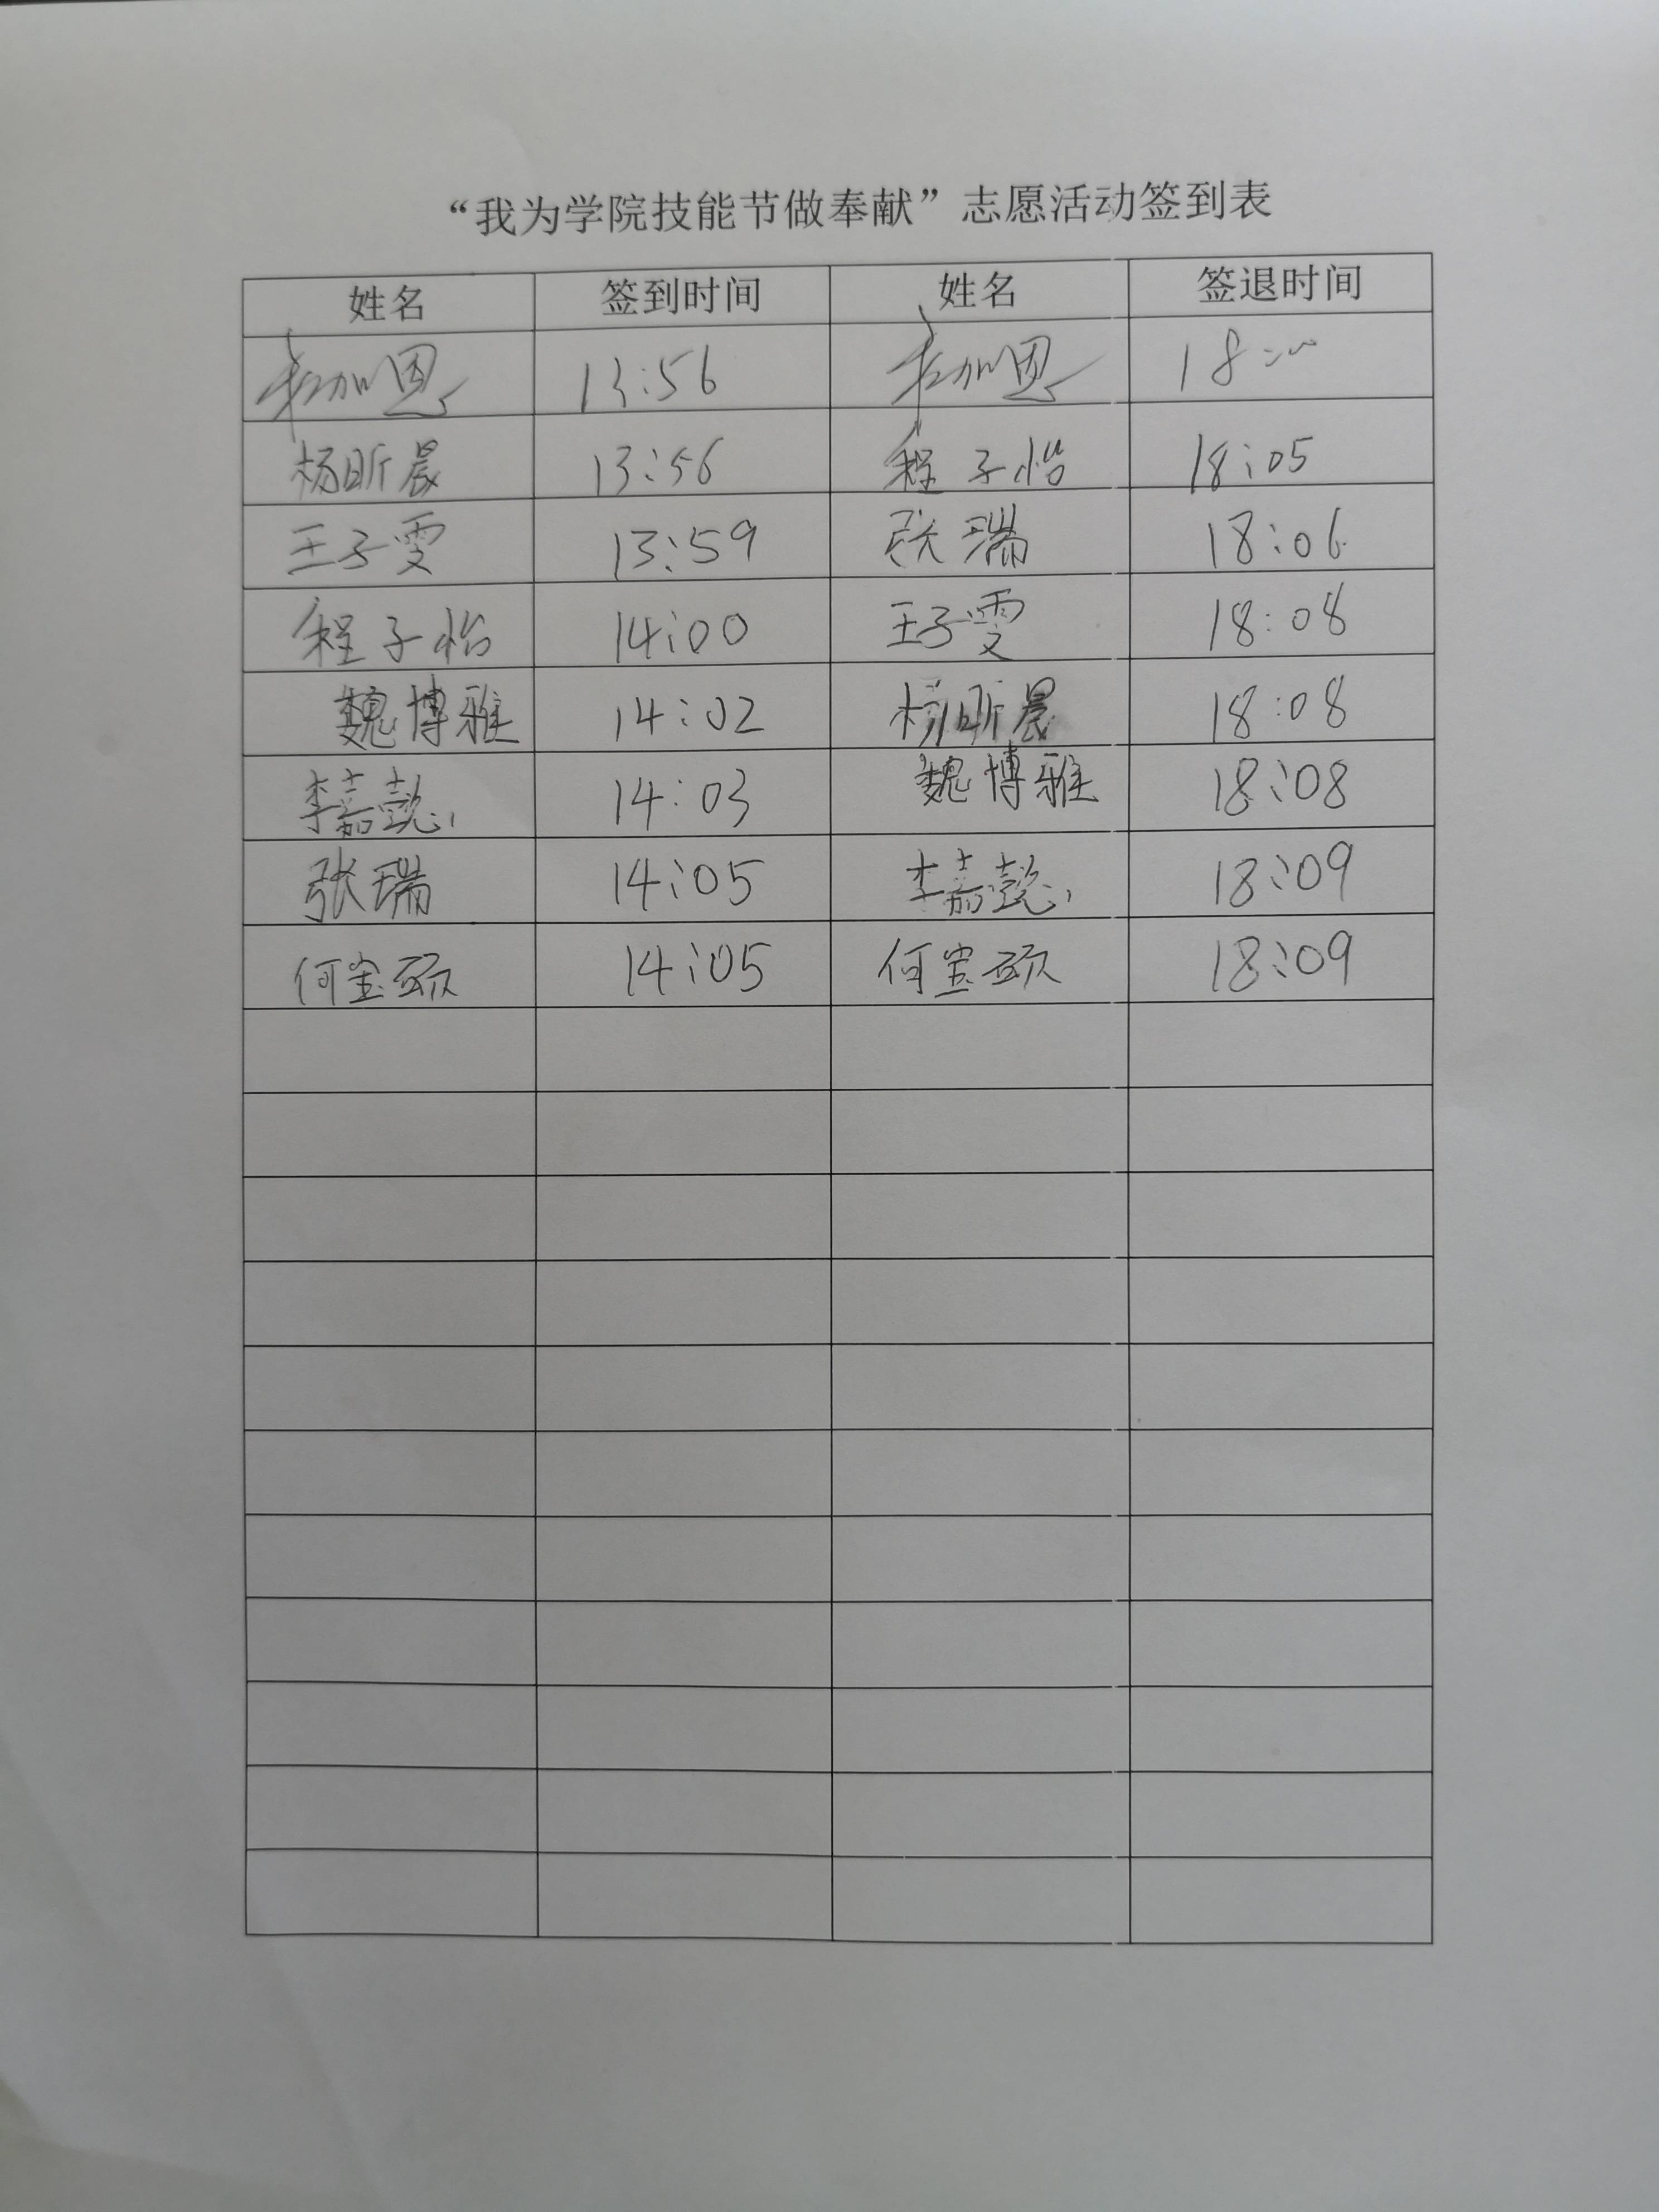 “我为学院技能节做奉献”志愿活动签到表
姓名 签到时间 姓名 签退时间
加恩 13:56 加恩 18:00
杨昕晨 13:56 程子怡 18:05
王子雯 13:59 张瑞 18:06
程子怡 14:00 王子雯 18:08
魏博雅 14:02 杨昕晨 18:08
李嘉懿 14:03 魏博雅 18:08
张瑞 14:05 李嘉懿 18:09
何宝硕 14:05 何宝硕 18:09